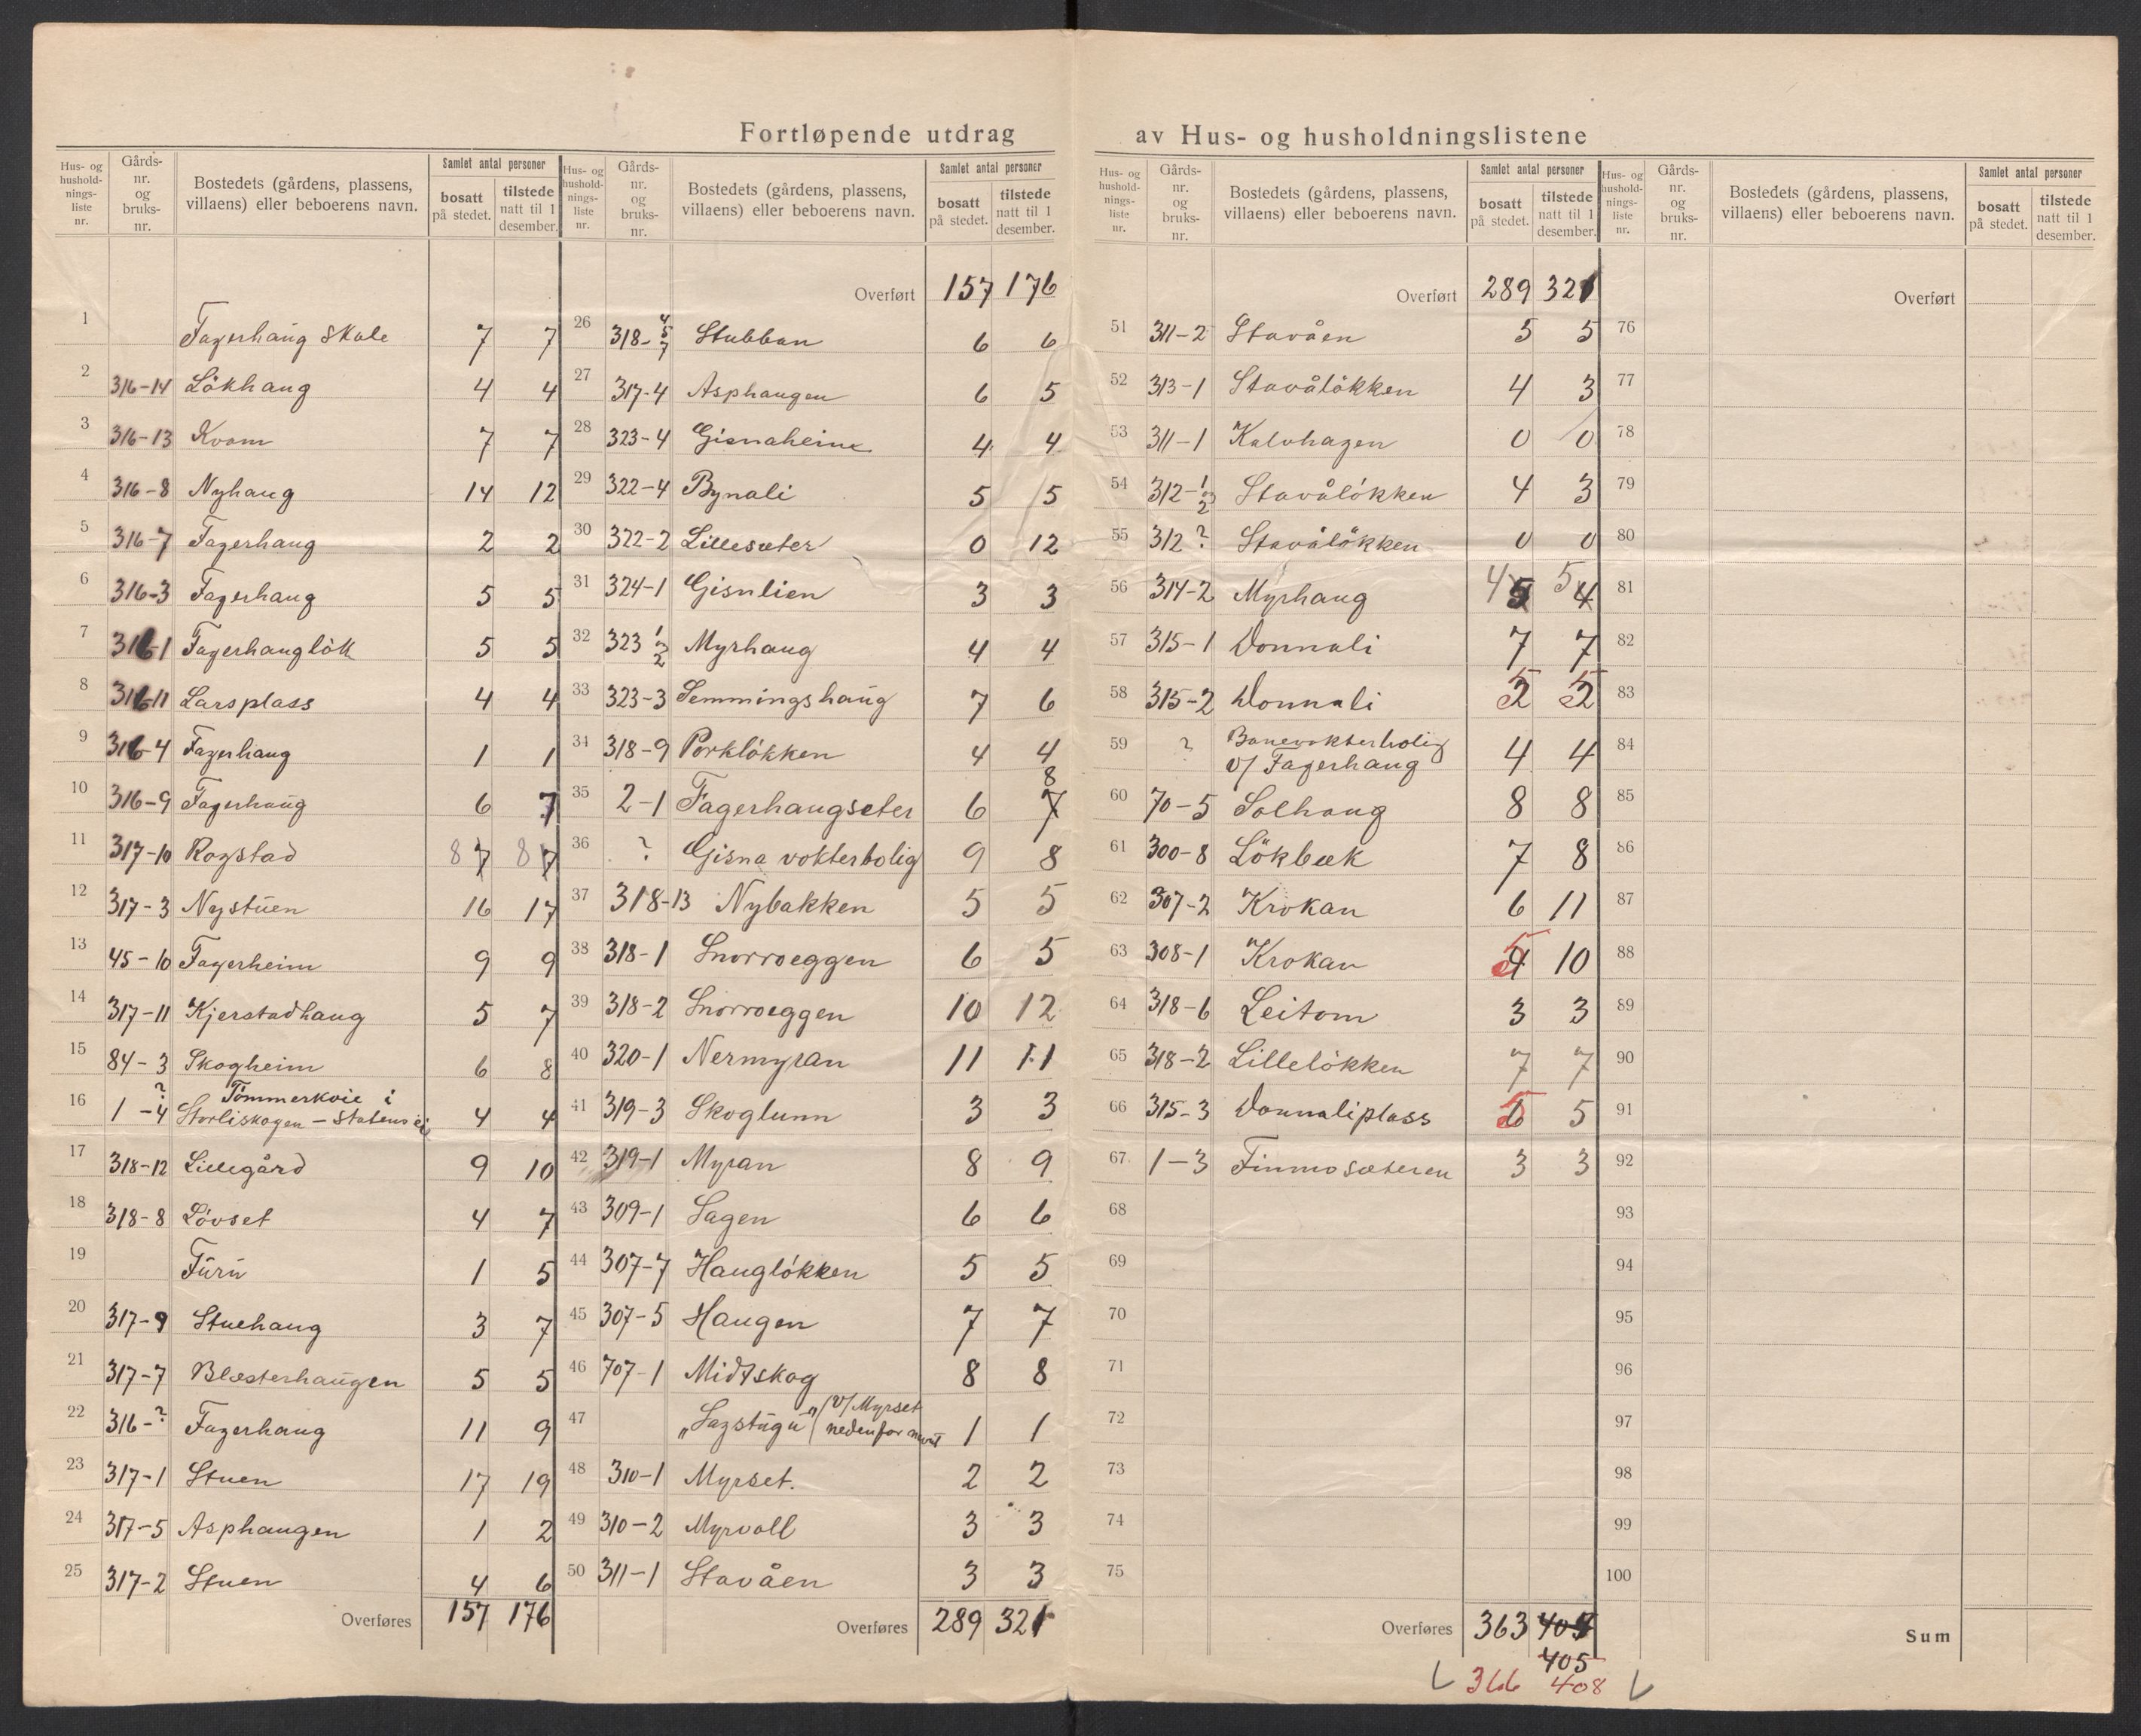 Fortløpende utdrag av Hus- og husholdningslistene
Hus- og husholdnings-liste nr. Gårds-nr. og bruks-nr. Bostedets (gårdens, plassens, villaens) eller beboerens navn. Samlet antal personer bosatt på stedet. tilstede natt til 1 desember.
1 Fagerhaug Skole 7 7
2 316-14 Lökhaug 4 4
3 316-13 Kvam 7 7
4 316-8 Nyhaug 14 12
5 316-7 Fagerhaug 2 2
6 316-3 Fagerhaug 5 5
7 316-1 Fagerhauglök 5 5
8 316-11 Larsplass 4 4
9 316-4 Fagerhaug 1 1
10 316-9 Fagerhaug 6 7
11 317-10 Rogstad 8 7 8 7
12 317-3 Nystuen 16 17
13 45-10 Fagerheim 9 9
14 317-11 Kjerstadhaug 5 7
15 84-3 Skogheim 6 8
16 1-4 ? Tömmerkoie i
Storliskogen - Statens 4 4
17 318-12 Lillegård 9 10
18 318-8 Lövset 4 7
19 Furu 1 5
20 317-9 Stuehaug 3 7
21 317-7 Blesterhaugen 5 5
22 316-? Fagerhaug 11 9
23 317-1 Stuen 17 19
24 317-5 Asphaugen 1 2
25 317-2 Stuen 4 6
Overføres 157 176
Hus- og husholdnings-liste nr. Gårds-nr. og bruks-nr. Bostedets (gårdens, plassens, villaens) eller beboerens navn. Samlet antal personer bosatt på stedet. tilstede natt til 1 desember.
Overført 157 176
26 318-4 5 7 Stubban 6 6
27 317-4 Asphaugen 6 5
28 323-4 Gisnaheim 4 4
29 322-4 Bynali 5 5
30 322-2 Lillesæter 0 12
31 324-1 Gisnlien 3 3
32 323 1 2 Myrhaug 4 4
33 323-3 Semmingshaug 7 6
34 318-9 Porklökken 4 4
35 2-1 Fagerhaugseter 6 7 8
36 ? Gisna vokterbolig 9 8
37 318-13 Nybakken 5 5
38 318-1 Snorroeggen 6 5
39 318-2 Snorroeggen 10 12
40 320-1 Nermyran 11 11
41 319-3 Skoglunn 3 3
42 319-1 Myran 8 9
43 309-1 Sagen 6 6
44 307-7 Hauglökken 5 5
45 307-5 Haugen 7 7
46 707-1 Midtskog 8 8
47 „Sagstugu" (v/ Myrset
nedenfor 1 1
48 310-1 Myrset. 2 2
49 310-2 Myrvoll 3 3
50 311-1 Stavåen 3 3
Overføres 289 321
Hus- og husholdnings-liste nr. Gårds-nr. og bruks-nr. Bostedets (gårdens, plassens, villaens) eller beboerens navn. Samlet antal personer bosatt på stedet. tilstede natt til 1 desember.
Overført 289 321
51 311-2 Stavåen 5 5
52 313-1 Stavålökken 4 3
53 311-1 Kalvhagen 0 0
54 312-1 2 Stavålökken 4 3
55 312 ? Stavålökken 0 0
56 314-2 Myrhaug 4 5 5 4
57 315-1 Vonnali 7 7
58 315-2 Vonnali 5 2 5 2
59 ? Banevokterbolig
v/ Fagerhaug 4 4
60 70-5 Solhaug 8 8
61 300-8 Lökbæk 7 8
62 307-2 Krokan 6 11
63 308-1 Krokan 5 4 10
64 318-6 Leitom 3 3
65 318-2 Lillelökken 7 7
66 315-3 Vonnaliplass 5 6 5
67 1-3 Finmosæteren 3 3
68
69
70
71
72
73
74
75
Overføres 363 404
405
366 408
Hus- og husholdnings-liste nr. Gårds-nr. og bruks-nr. Bostedets (gårdens, plassens, villaens) eller beboerens navn. Samlet antal personer bosatt på stedet. tilstede natt til 1 desember.
Overført
76
77
78
79
80
81
82
83
84
85
86
87
88
89
90
91
92
93
94
95
96
97
98
99
100
Sum